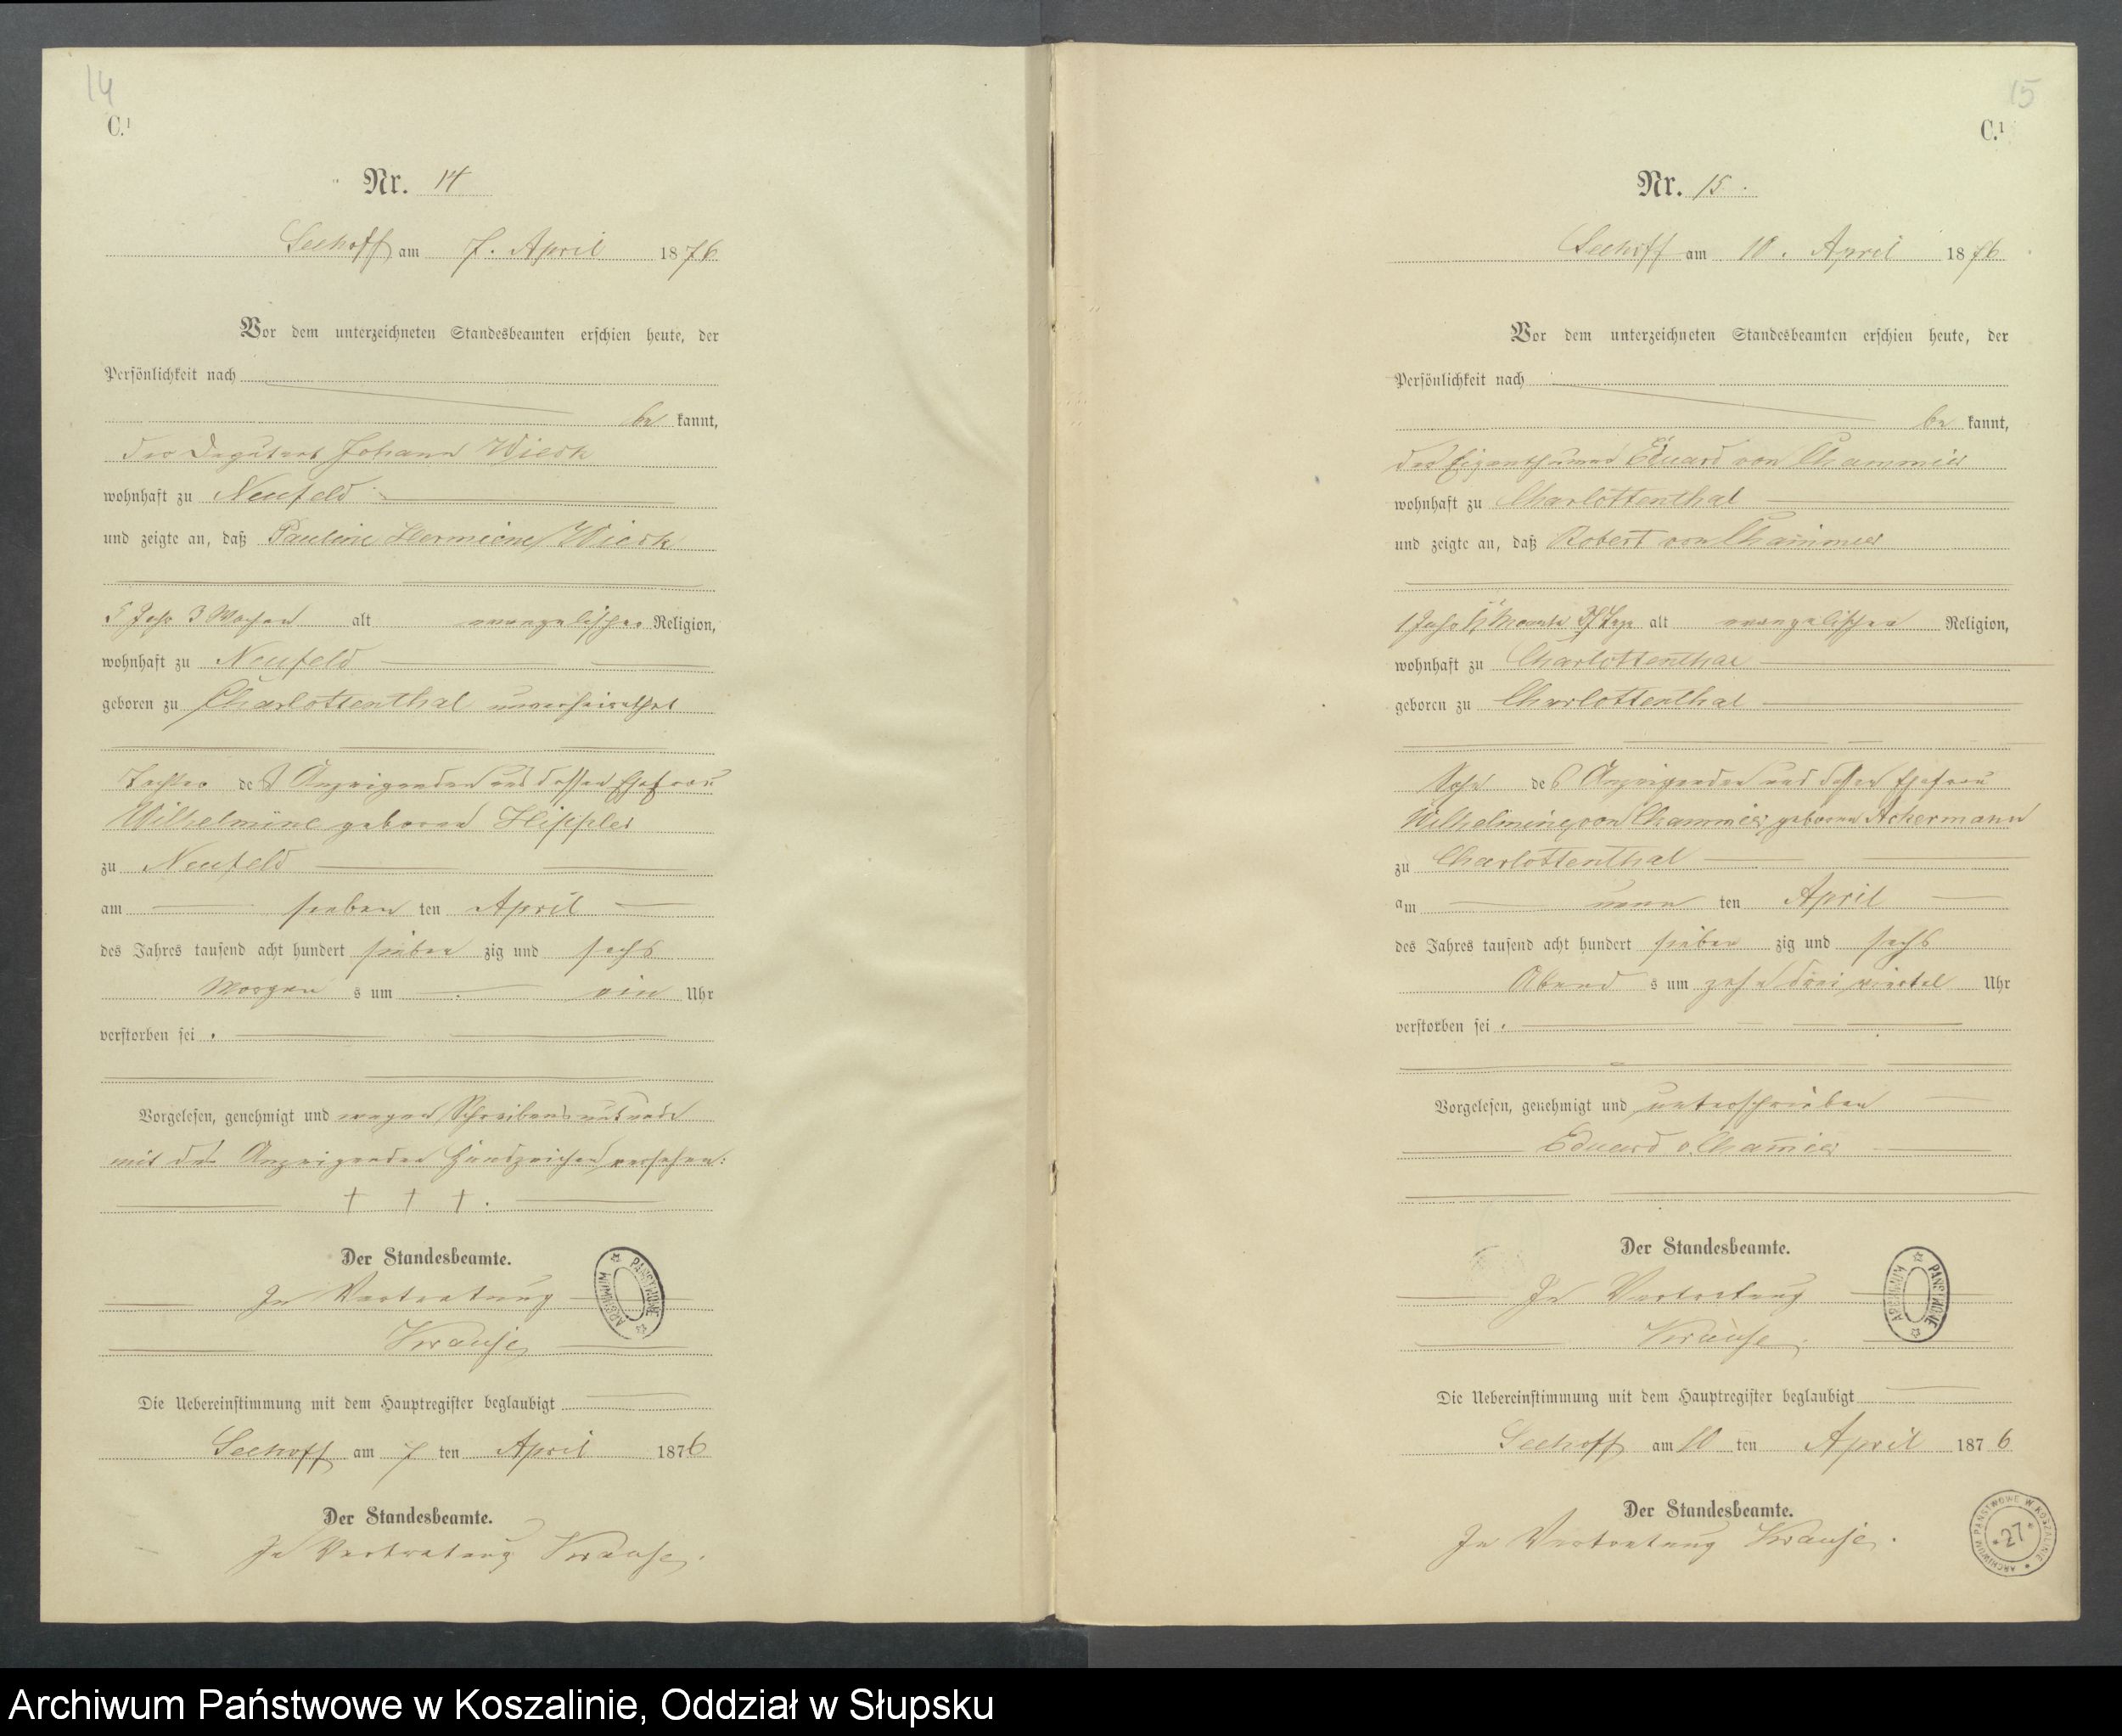 14
C.1
Nr. 14
Seehoff am 7. April 1876
Vor dem unterzeichneten Standesbeamten erschien heute, der
Persönlichkeit nach
be kannt,
der Deputant Johann Wieck
wohnhaft zu Neufeld
und zeigte an, daß Pauline Hermiene Wieck
Jahr 3 Wochen alt evangelischer Religion,
wohnhaft zu Neufeld
geboren zu Charlottenthal unverheirathet
Tochter des Anzeigenden und dessen Ehefrau
Wilhelmine geboren Hippler
zu Neufeld
am sieben ten April
des Jahres tausend acht hundert sieben zig und sechs
Morgen s um ein Uhr
verstorben sei.
Vorgelesen, genehmigt und wegen Schreibens
mit des Anzeigenden Handzeichen versehen:
† † †.
Der Standesbeamte.
In Vertretung
Krause
PAŃSTWOWE ARCHIWUM
Die Uebereinstimmung mit dem Hauptregister beglaubigt
Seehoff am 7 ten April 1876
Der Standesbeamte.
In Vertretung Krause.
15
C.1
Nr. 15.
Seehoff am 10. April 1876
Vor dem unterzeichneten Standesbeamten erschien heute, der
Persönlichkeit nach
be kannt,
der Eigenthümer Eduard von Chammier
wohnhaft zu Charlottenthal
und zeigte an, daß Robert von Chammier
1 Jahr Monate Tage alt evangelischer Religion,
wohnhaft zu Charlottenthal
geboren zu Charlottenthal
Sohn des Anzeigenden und dessen Ehefrau
Wilhelmine von Chammier geboren Ackermann
zu Charlottenthal
am neun ten April
des Jahres tausend acht hundert sieben zig und sechs
Abend s um zehn drei viertel Uhr
verstorben sei.
Vorgelesen, genehmigt und unterschrieben
Eduard v. Chamier
Der Standesbeamte.
In Vertretung
Krause.
PAŃSTWOWE ARCHIWUM
Die Uebereinstimmung mit dem Hauptregister beglaubigt
Seehoff am 10 ten April 1876
Der Standesbeamte.
In Vertretung Krause.
ARCHIWUM PAŃSTWOWE W KOSZALINIE
*27*
Archiwum Państwowe w Koszalinie, Oddział w Słupsku